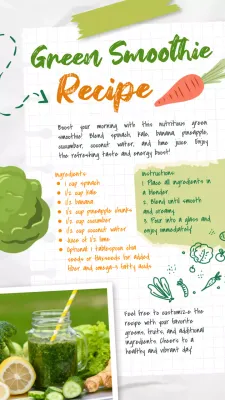 Green Smoothie
Recipe
Boost your morning with this nutritious green
smoothie! Blend spinach, kale, banana, pineapple,
cucumber, coconut water, and lime juice. Enjoy
the refreshing taste and energy boost!
Ingredients:
1 cup spinach
1/2 cup kale
1/2 banana
1/2 cup pineapple chunks
1/2 cup cucumber
1/2 cup coconut water
Juice of 1/2 lime
Optional: 1 tablespoon chia
seeds or flaxseeds for added
fiber and omega-3 fatty acids
Instructions:
1. Place all ingredients in
a blender.
2. Blend until smooth
and creamy.
3. Pour into a glass and
enjoy immediately!
Feel free to customize the
recipe with your favorite
greens, fruits, and additional
ingredients. Cheers to a
healthy and vibrant day!